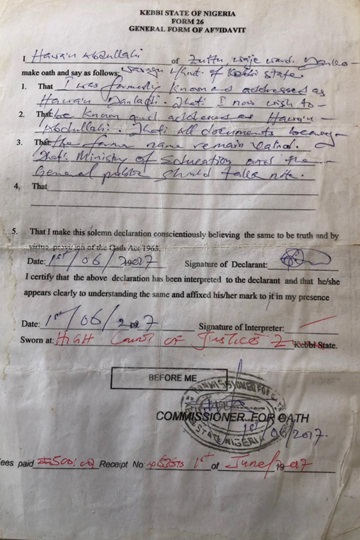 KEBBI STATE OF NIGERIA
FORM 26
GENERAL FORM OF AFFIDAVIT
I Hawa'u Abdullahi of Zuttu
make oath and say as follows, L/Govt. of Kebbi state.
1. That I was formerly known and addressed as
Hawa'u Danladi. That I now wish to
2. That be known and addressed as Hawa'u
Abdullahi. That all documents bearing
3. That the former name remain valid.
That Ministry of Education and the
General public should take note.
4. That
5. That I make this solemn declaration conscientiously believing the same to be truth and by
virtue of the Oath Act 1963.
Date: 1st/06/2017 Signature of Declarant:
I certify that the above declaration has been interpreted to the declarant and that he/she
appears clearly to understanding the same and affixed his/her mark to it in my presence
Date: 1st/06/2017 Signature of Interpreter:
Sworn at: High Court of Justice Kebbi State.
BEFORE ME
COMMISSIONER FOR OATH
STATE NIGERIA
06/2017.
ees paid 500:00 Receipt No 1st of June/19